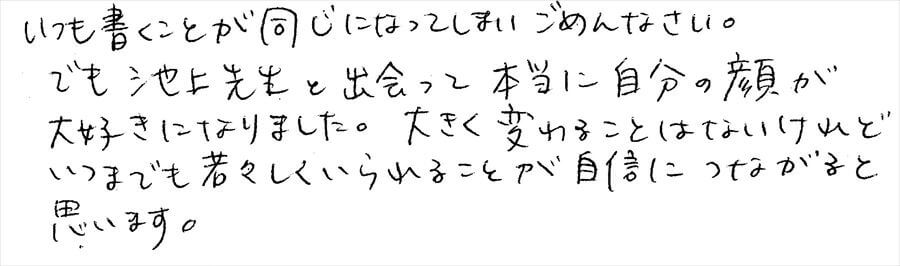 いつも書くことが同じになってしまいごめんなさい。
でも池上先生と出会って本当に自分の顔が
大好きになりました。大きく変わることはないけれど
いつまでも若々しくいられることが自信につながると
思います。